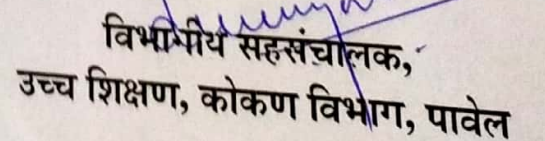 विभागीय सहसंचालक,
उच्च शिक्षण, कोकण विभाग, पावेल